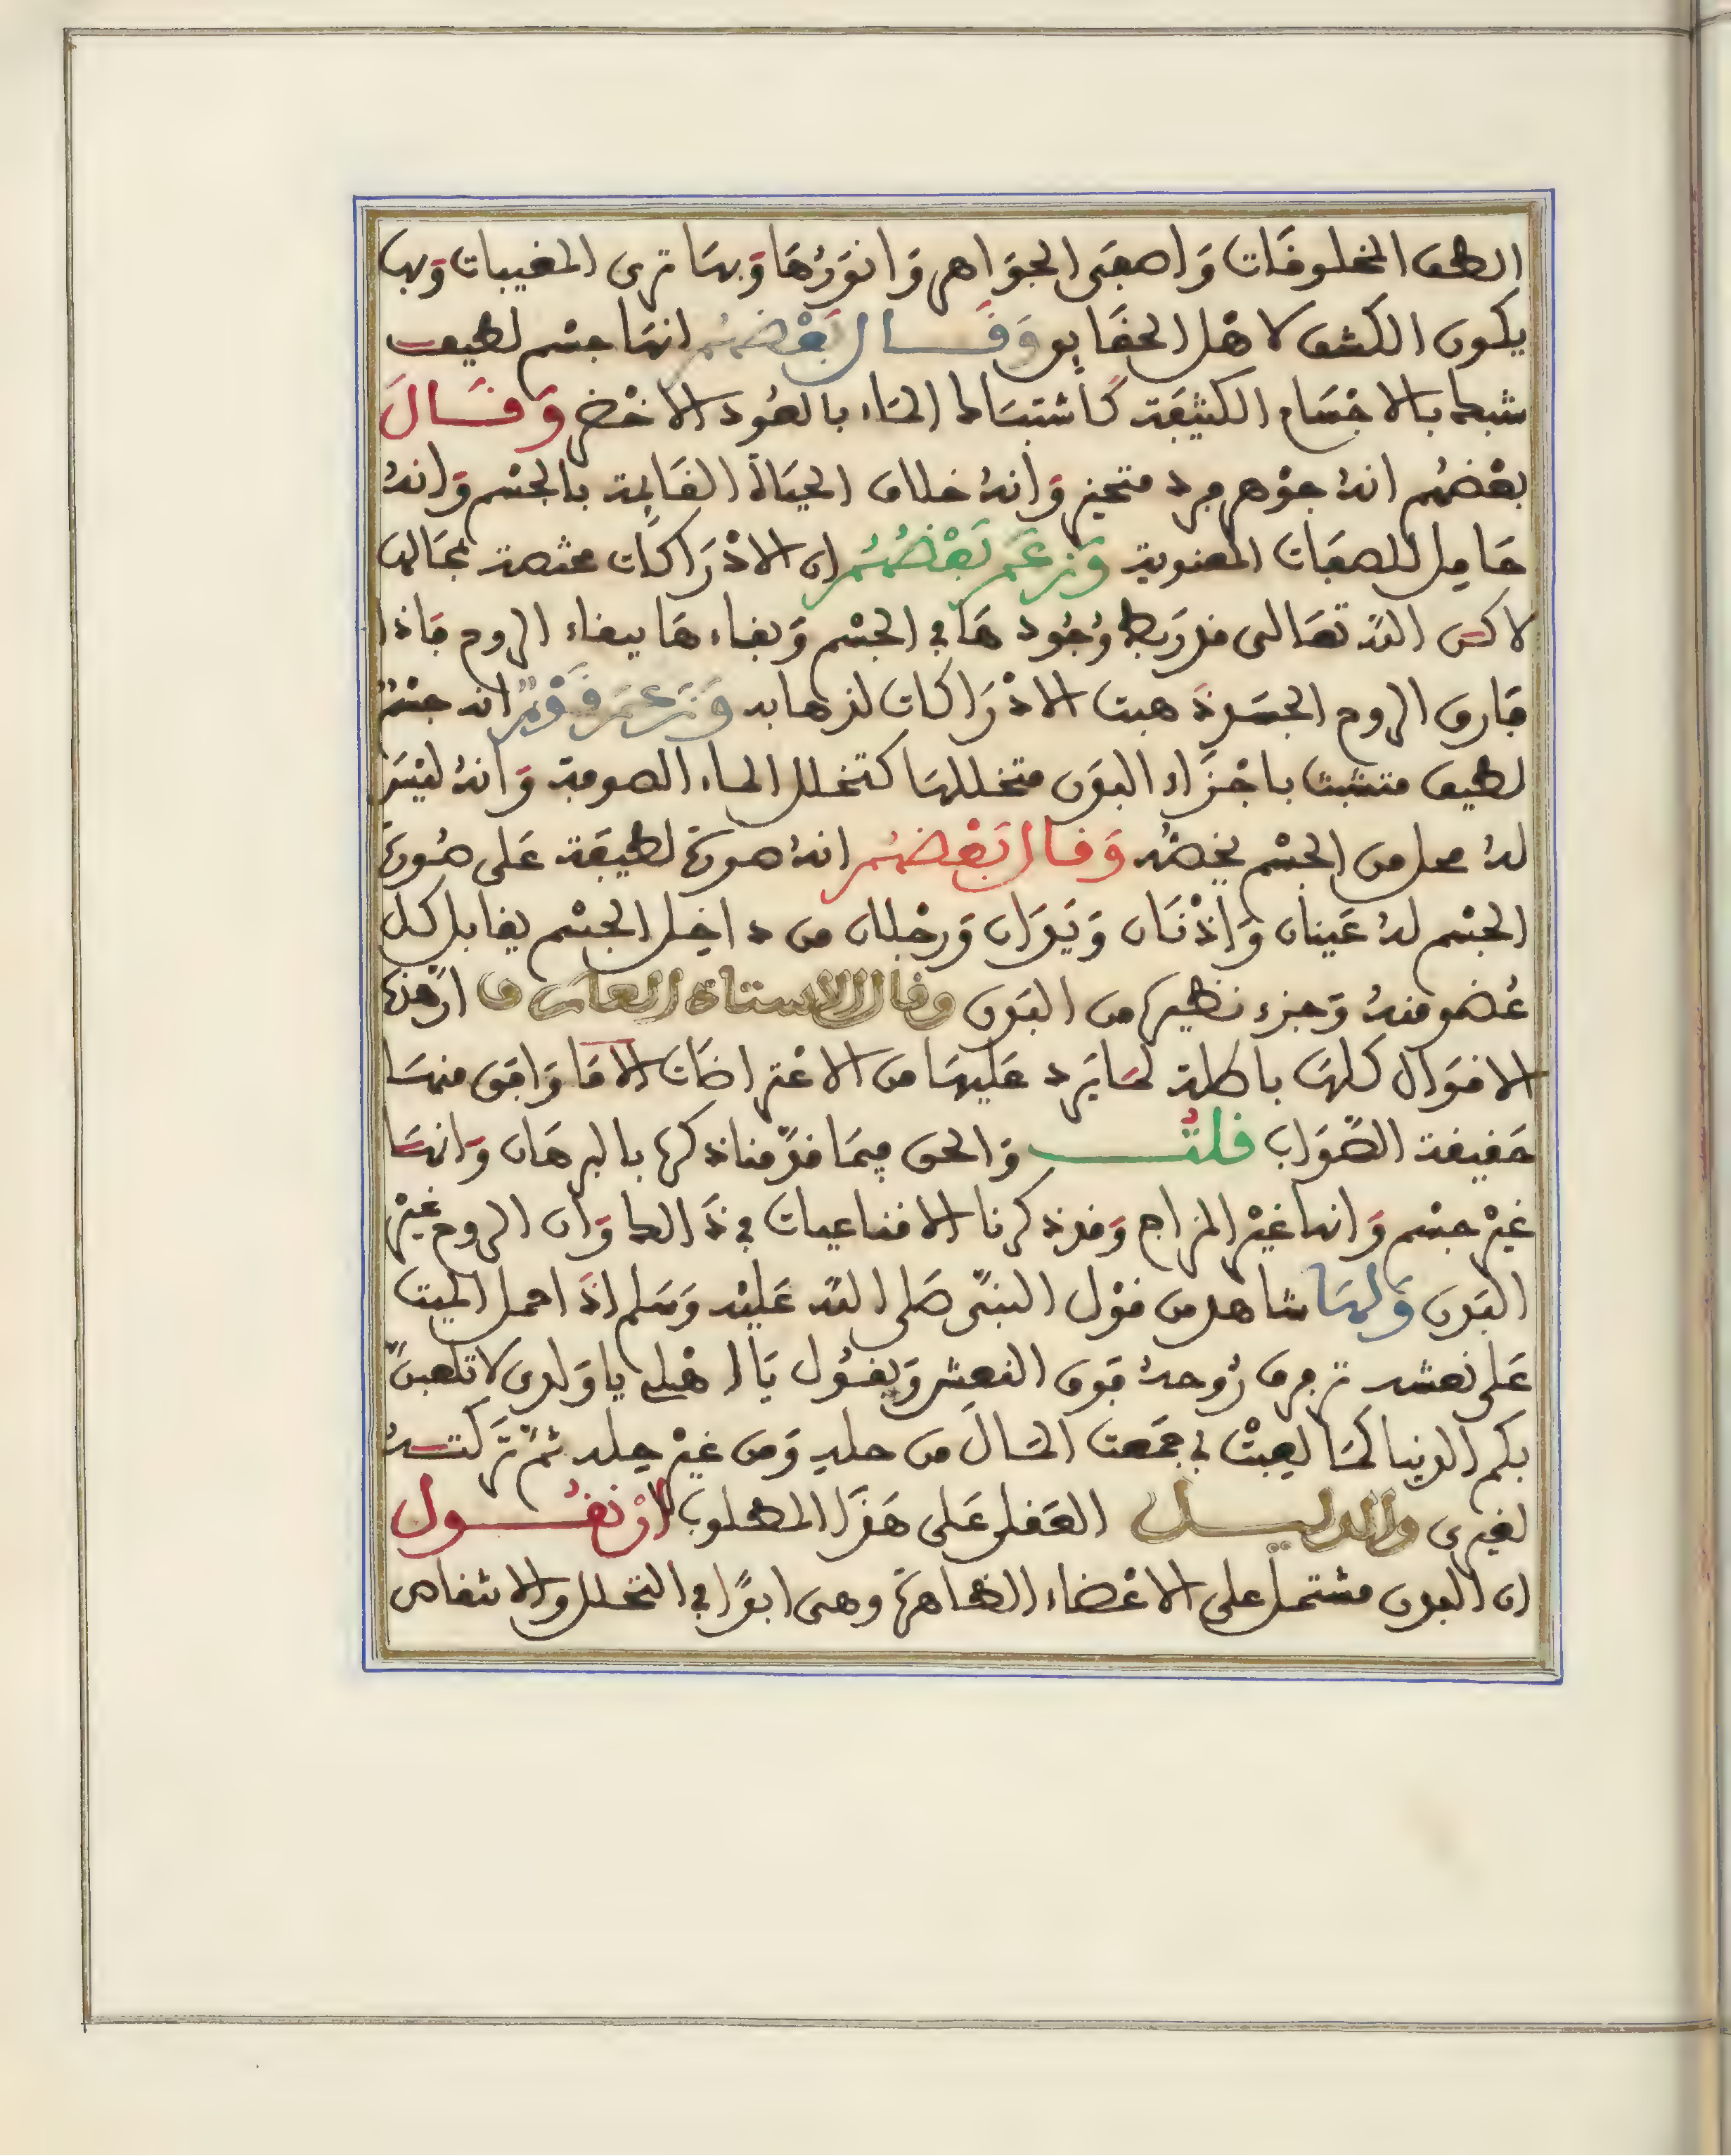 الطف المخلوقات وَاصفى الجوَاهر وَانوَرُهَا وَبهَا ترى المغيبات وَبها
يكون الكشف لاهْل الحقَايق وَقَال بَعْضهُم انهَا جسْم لطيف
شبك بالاجْسَام الكثيفة كاشتبَاك المَاء بالعُود الاخْضر وَقَالَ
بعْضهُم انهُ جوْهر فرد متحيز وَانهُ خلاف الحيَاة القَايمة بالجسْم وَانهُ
حَامِل للصفَات المعنوية وَزعَمَ بَعْضُهُم ان الادْرَاكَات مختصة بمَحَالها
لاكن اللّه تعَالى قد رَبط وُجُودهَا في الجسْم وَبقاءهَا ببقاء الروح فَاذا
فَارق الروح الجسَد ذَهبت الادْرَاكات لذهابه وَزَعَمَ قَوْمٌ انه جسْمٌ
لطيف متشبث باجْزَاء البدَن متخللهَا كتخلل الماء الصوفة وَانهُ ليْسَ
لهُ محل من الجسْم يخصّه وَقال بَعْضهُم انهُ صورَة لطيفَة عَلى صُورَة
الجسْم لهُ عَينان وَاذْنَان وَيَدَان وَرجْلان من داخِل الجسْم يقابل كل
عُضو منهُ وَجزء نظيره من البدَن وقال الاستاذ العارف ان هذه
الاقوَال كلهَا باطلة لمَا يَرد عَليهَا من الاعْتراضَات الا مَا وَافق منهَا
حَقيقة الصّوَاب قلتُ وَالحق فيمَا قدّمنا ذكره بالبرهَان وَانهَا
غيْر جسْم وَانها غيْر المزاج وَقد ذكرنا الاقناعيات في ذَالك وَان الروح غيْر
البدَن وَلهَا شاهد من قوْل النبىّ صَلى اللّه عَليْه وَسَلم اذَا حمل الميت
عَلى نعشه ترفرف رُوحهُ فَوق النعش وَيقُول يَا اهْلي يا وَلدى لا تلعبنّ
بكم الدنيا كمَا لعِبتْ بي جمَعت المَالَ من حله وَمن غيْر حِله ثمّ تَركتهُ
لغيرى والدليل العَقلى عَلى هَذَا المطلوب ان نقُول
ان البدن مشتمل على الاعْضاء الظاهرة وهى ابدًا في التحلل والانتقاص